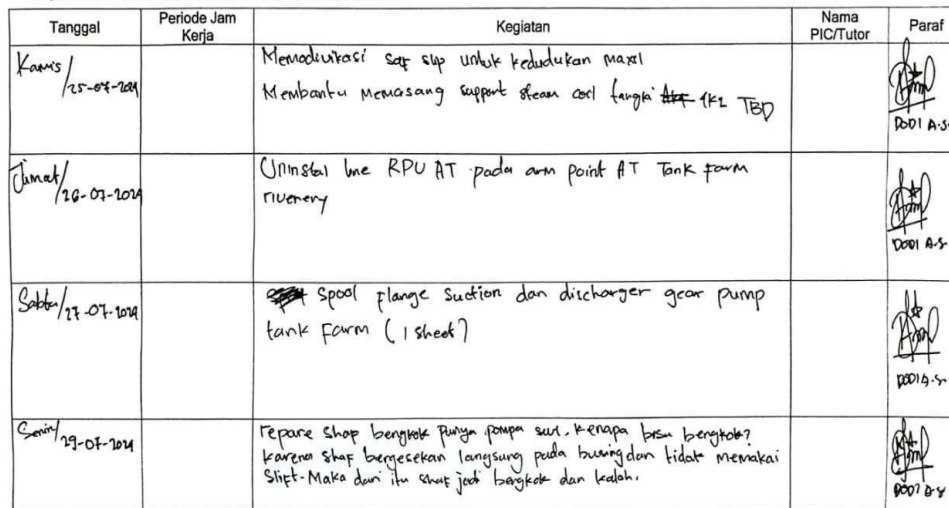 Tanggal
Periode Jam
Kerja
Kegiatan
Nama
PIC/Tutor
Paraf
Kamis/25-07-2024
Memodivikasi saf slip untuk kedudukan maxil
Membantu memasang support steam coil tangki 1K2 TBD
DODI A.S.
Jumat/26-07-2024
Uninstal line RPU AT pada arm point AT Tank Farm
riuenery
DODI A.S.
Sabtu/27-07-2024
Spool flange suction dan discharger gear pump
tank Farm (1 sheet)
DODI A.S.
Senin/29-07-2024
repare shap bengkok punya pompa surl. Kenapa bisa bengkok?
karena shaf bergesekan langsung pada busing dan tidak memakai
Slift. Maka dari itu shaf jadi bengkok dan kalah.
DODI A.S